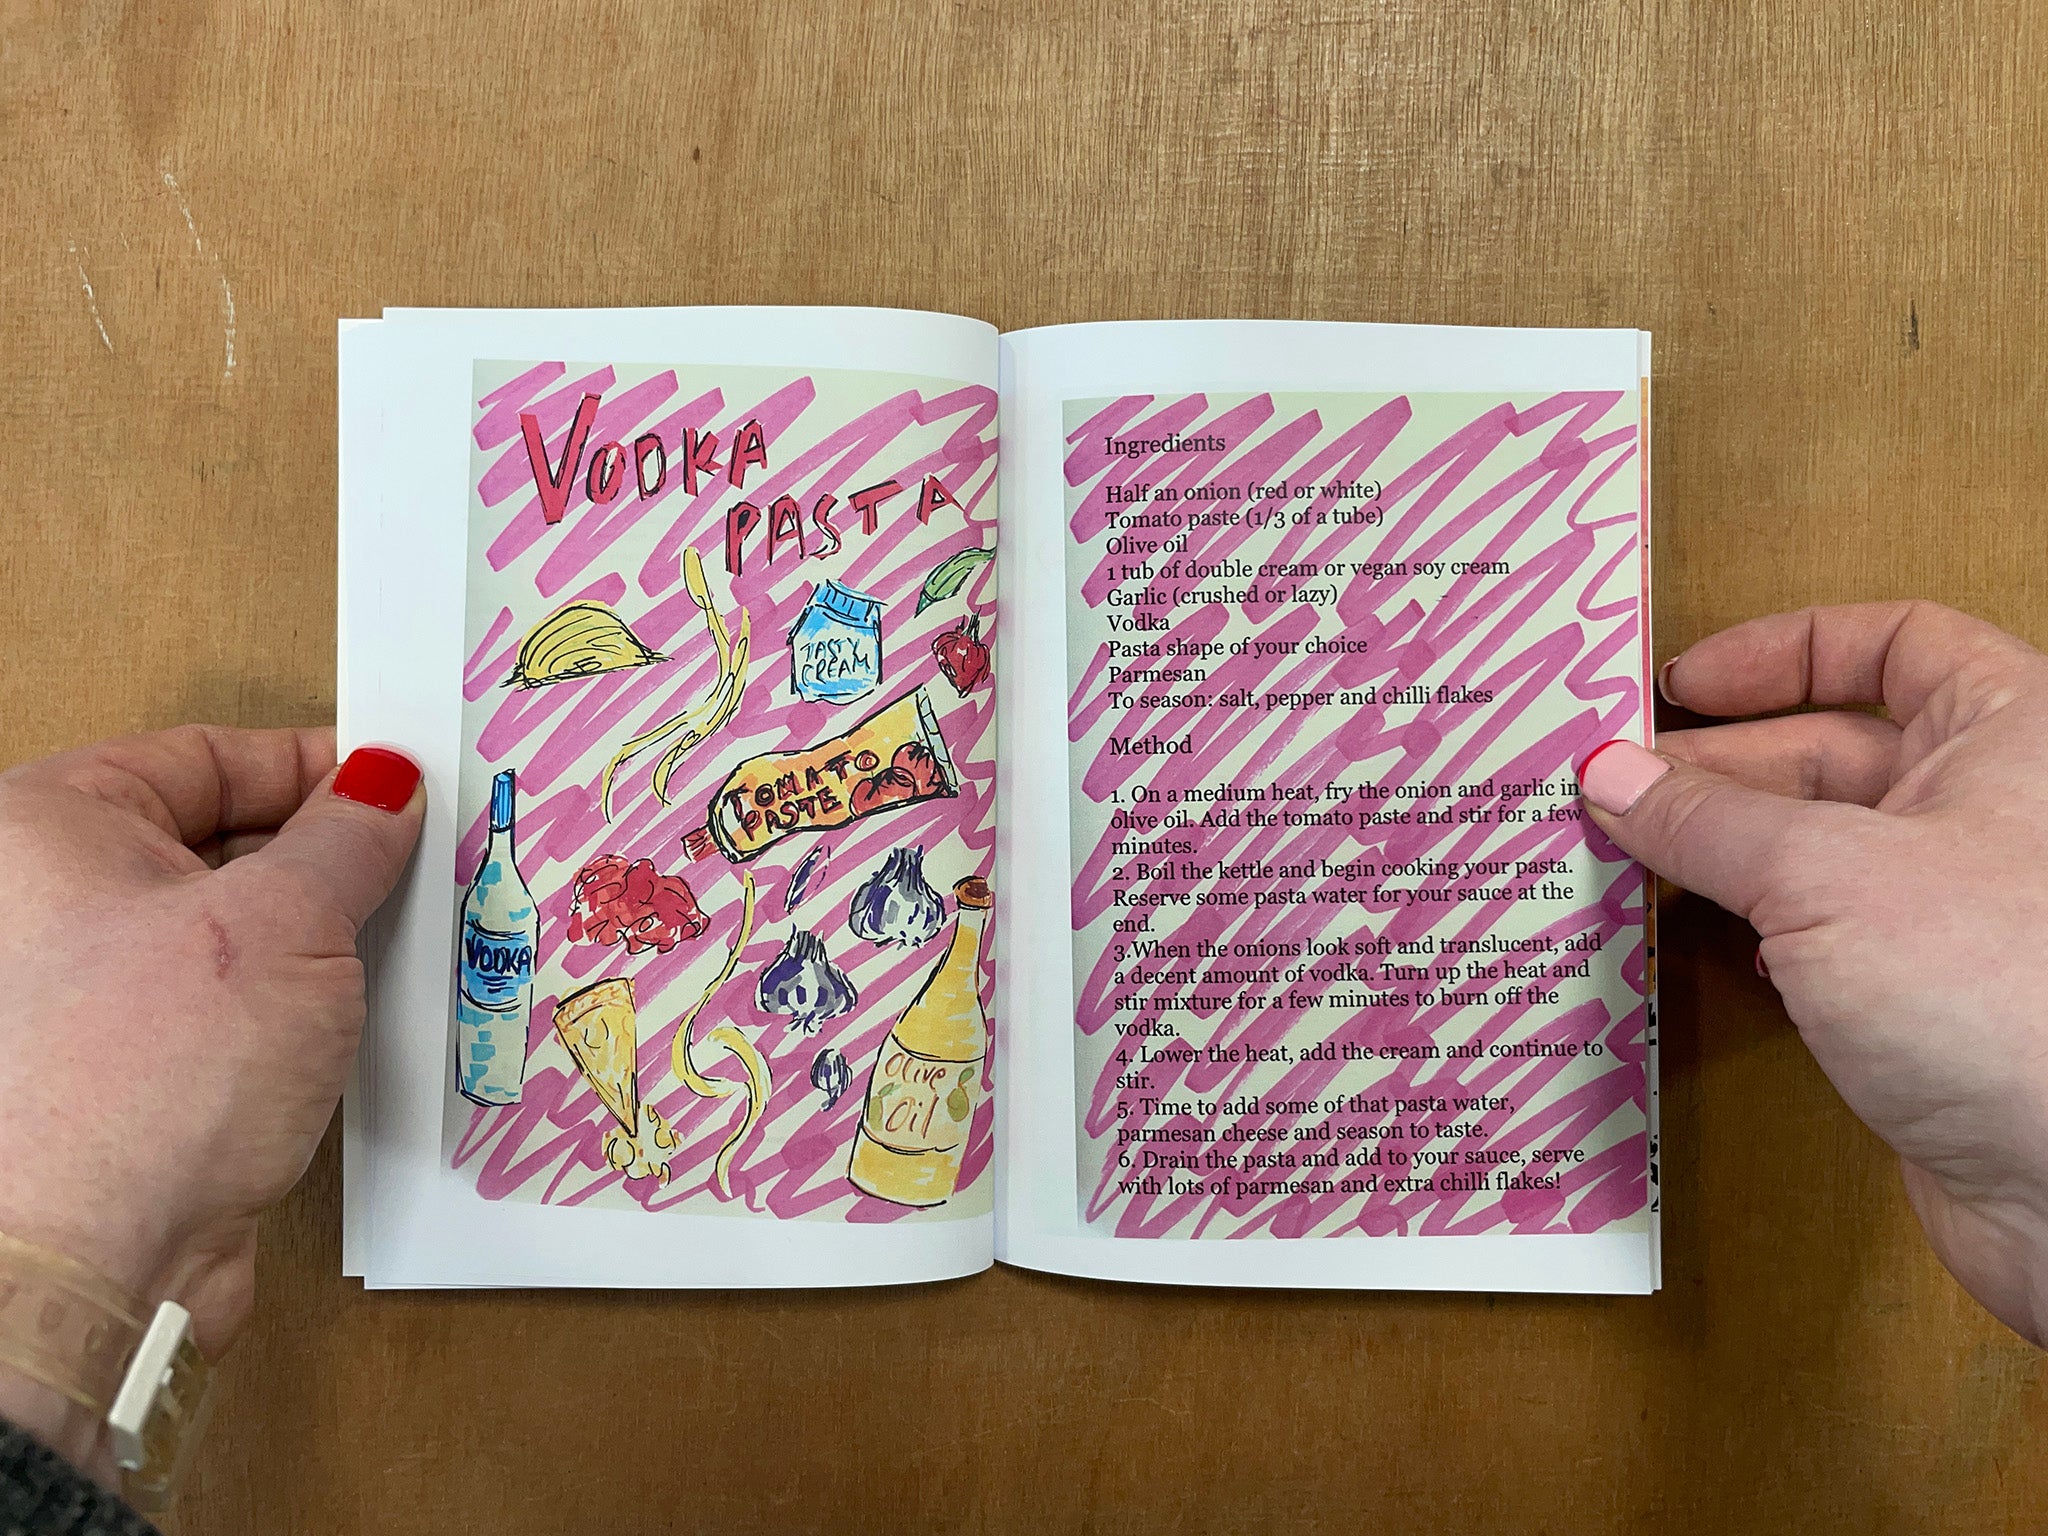 VODKA
PASTA
TASTY
CREAM
TOMATO
PASTE
VODKA
Olive
Oil
Ingredients
Half an onion (red or white)
Tomato paste (1/3 of a tube)
Olive oil
1 tub of double cream or vegan soy cream
Garlic (crushed or lazy)
Vodka
Pasta shape of your choice
Parmesan
To season: salt, pepper and chilli flakes
Method
1. On a medium heat, fry the onion and garlic in
olive oil. Add the tomato paste and stir for a few
minutes.
2. Boil the kettle and begin cooking your pasta.
Reserve some pasta water for your sauce at the
end.
3.When the onions look soft and translucent, add
a decent amount of vodka. Turn up the heat and
stir mixture for a few minutes to burn off the
vodka.
4. Lower the heat, add the cream and continue to
stir.
5. Time to add some of that pasta water,
parmesan cheese and season to taste.
6. Drain the pasta and add to your sauce, serve
with lots of parmesan and extra chilli flakes!